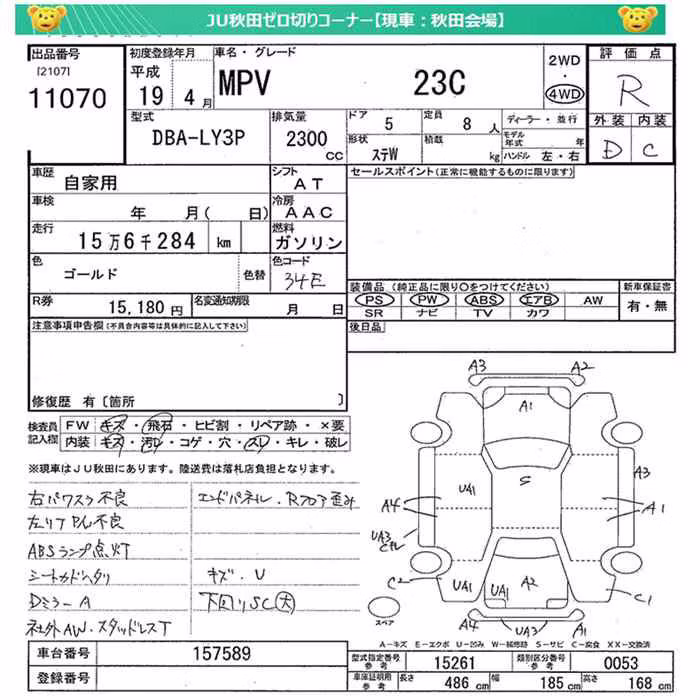 JU秋田ゼロ切りコーナー【現車：秋田会場】
出品番号 初度登録年月 車名・グレード 評価点
[2107] 11070
平成 19 4月
MPV 23C
2WD・4WD
R
型式 DBA-LY3P
排気量 2300 CC
ドア 5 定員 8人
形状 ステW 積載 kg
ディーラー・並行
モデル年式 年
ハンドル 左・右
外装 内装
D C
車歴 自家用
シフト AT
セールスポイント(正常に機能するものに限ります)
車検 年 月( 日)
冷房 AAC
走行 15万6千284 km
燃料 ガソリン
色 ゴールド 色替
色コード 34E
装備品 (純正品に限り○をつけてください)
新車保証書
PS PW ABS エアB AW
SR ナビ TV カワ
有・無
R券 15,180円
名変通知期限 月 日
後日品
注意事項申告欄(不具合内容等は具体的に記入して下さい)
修復歴 有〔箇所 〕
検査員記入欄
FW キズ・飛石・ヒビ割・リペア跡・×要
内装 キズ・汚れ・コゲ・穴・スレ・キレ・破レ
※現車はJU秋田にあります。陸送費は落札店負担となります。
右パワスラ不良
エンドパネル・Rフロア歪み
左リア 不良
ABSランプ点灯
シートカド
キズ・U
Dミラー A
下回りSC(大)
社外AW・スタッドレスT
A3 A2
A1
UA1 S A3
A4 A1
UA3
C2 UA1 UA1 A2 C1
A4 UA3 A1
スペア
A－キズ E－エクボ U－凹み W－補修跡 S－サビ C－腐食 XX－交換済
車台番号 157589
登録番号
型式指定番号 参考 15261
類別区分番号 参考 0053
車庫証明用 参考 長さ 486 cm 幅 185 cm 高さ 168 cm